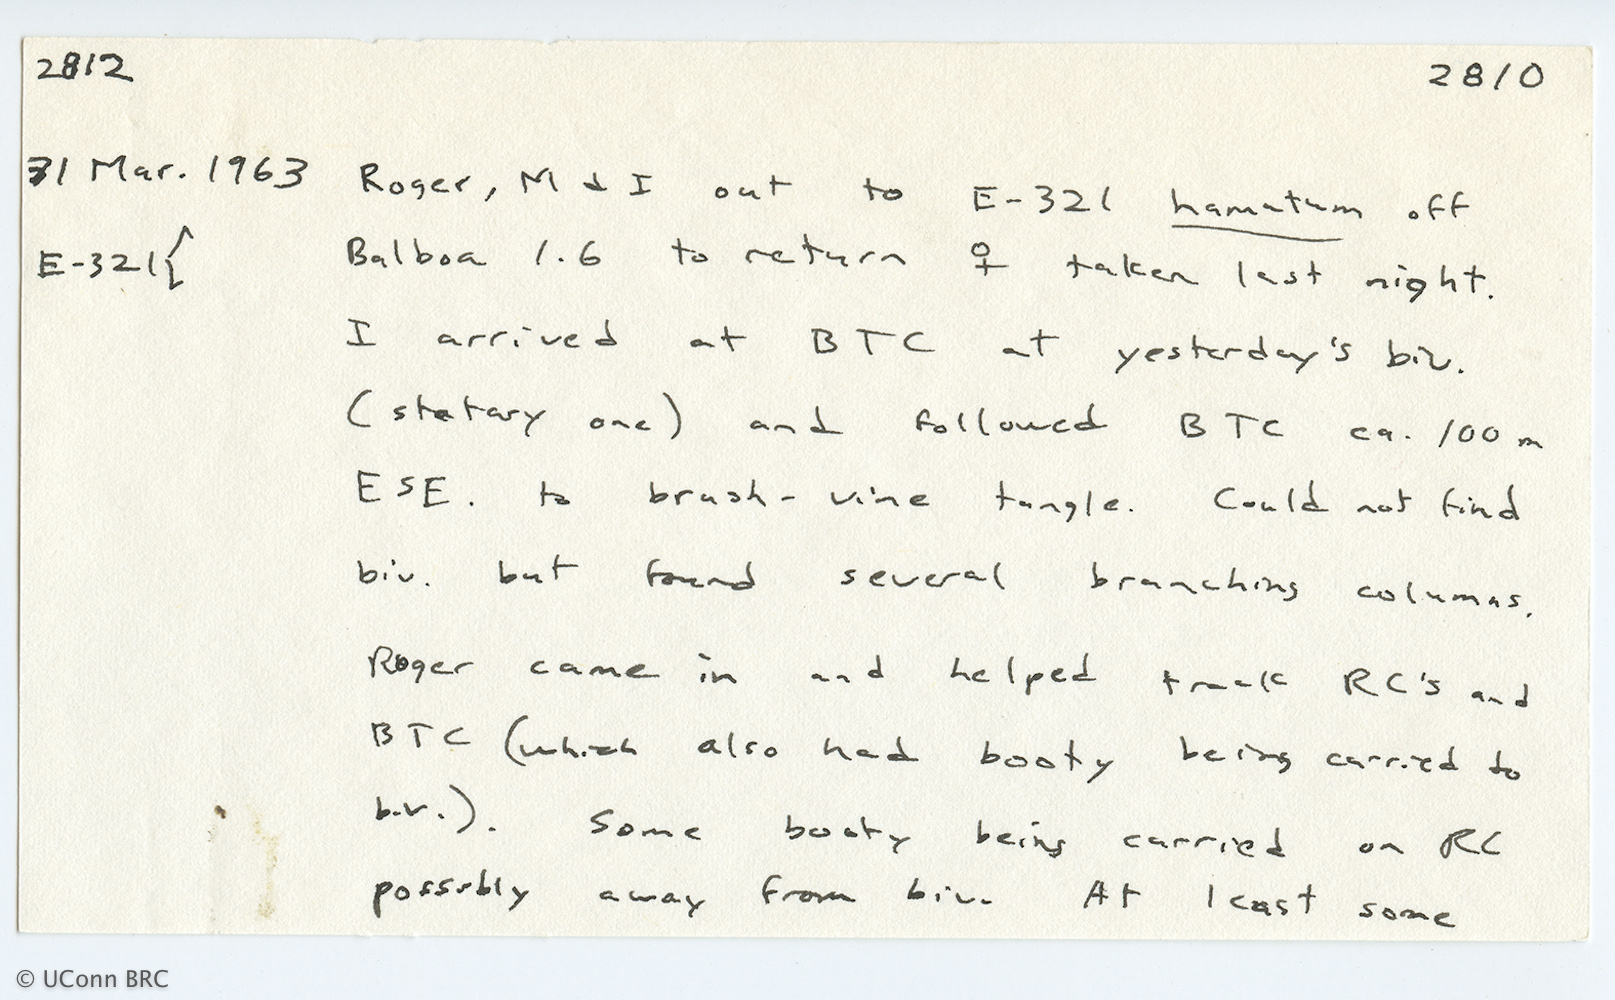 2812 2810
31 Mar. 1963 Roger, M & I out to E-321 hamatum off
E-321{ Balboa 1.6 to return ♀ taken last night.
I arrived at BTC at yesterday's biv.
(statary one) and followed BTC ca. 100 m
ESE. to brush-vine tangle. Could not find
biv. but found several branching columns.
Roger came in and helped track RC's and
BTC (which also had booty being carried to
biv.). Some booty being carried on RC
possibly away from biv. At least some
© UConn BRC